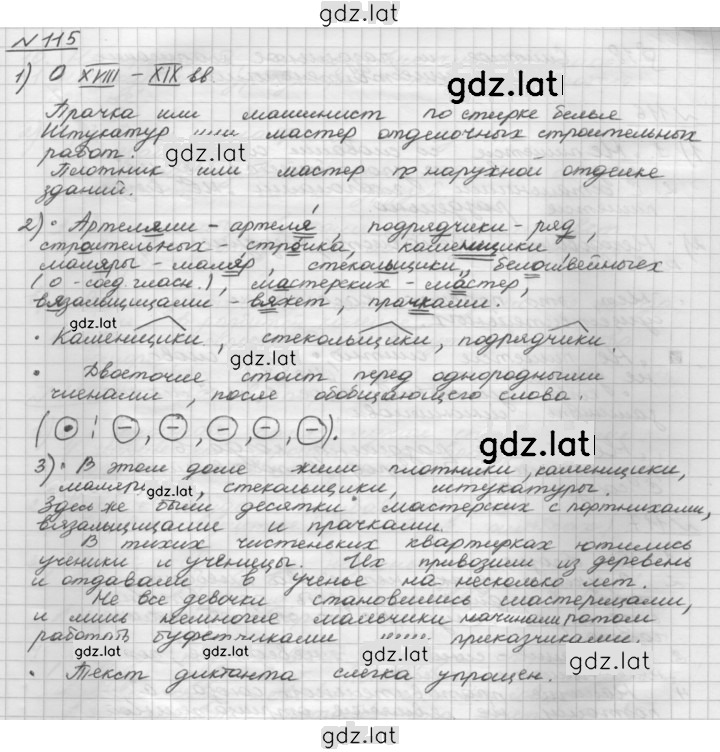 gdz.lat
№115
1) О XVIII – XIX вв
gdz.lat
Прачка или машинист по стирке белья
Штукатур ,,,,, мастер отделочных строительных
работ.
gdz.lat
Плотник или мастер по наружной отделке
зданий.
2) · Артелями – артеля́, подрядчики – ряд,
строительных – стройка, каменщики
маляры – маляр, стекольщики, белошвейных
(о – соед. гласн.), мастерских – мастер,
вязальщицами – вяжет, прачками.
gdz.lat
· Каменщики, стекольщики, подрядчики.
gdz.lat
· Двоеточие стоит перед однородными
членами, после обобщающего слова.
(⊙ : ⊖, ⊖, ⊖, ⊖, ⊖).
gdz.lat
3) · В этом доме жили плотники, каменщики,
маляры, стекольщики, штукатуры.
gdz.lat
Здесь же были десятки мастерских с портнихами,
вязальщицами и прачками.
В тихих чистеньких квартирках ютились
ученики и ученицы. Их привозили из деревень
и отдавали в ученье на несколько лет.
Не все девочки становились мастерицами,
и лишь немногие мальчики начинали потом
работать буфетчиками ,,,,,, приказчиками.
gdz.lat gdz.lat gdz.lat gdz.lat
· Текст диктанта слегка упрощен.
gdz.lat